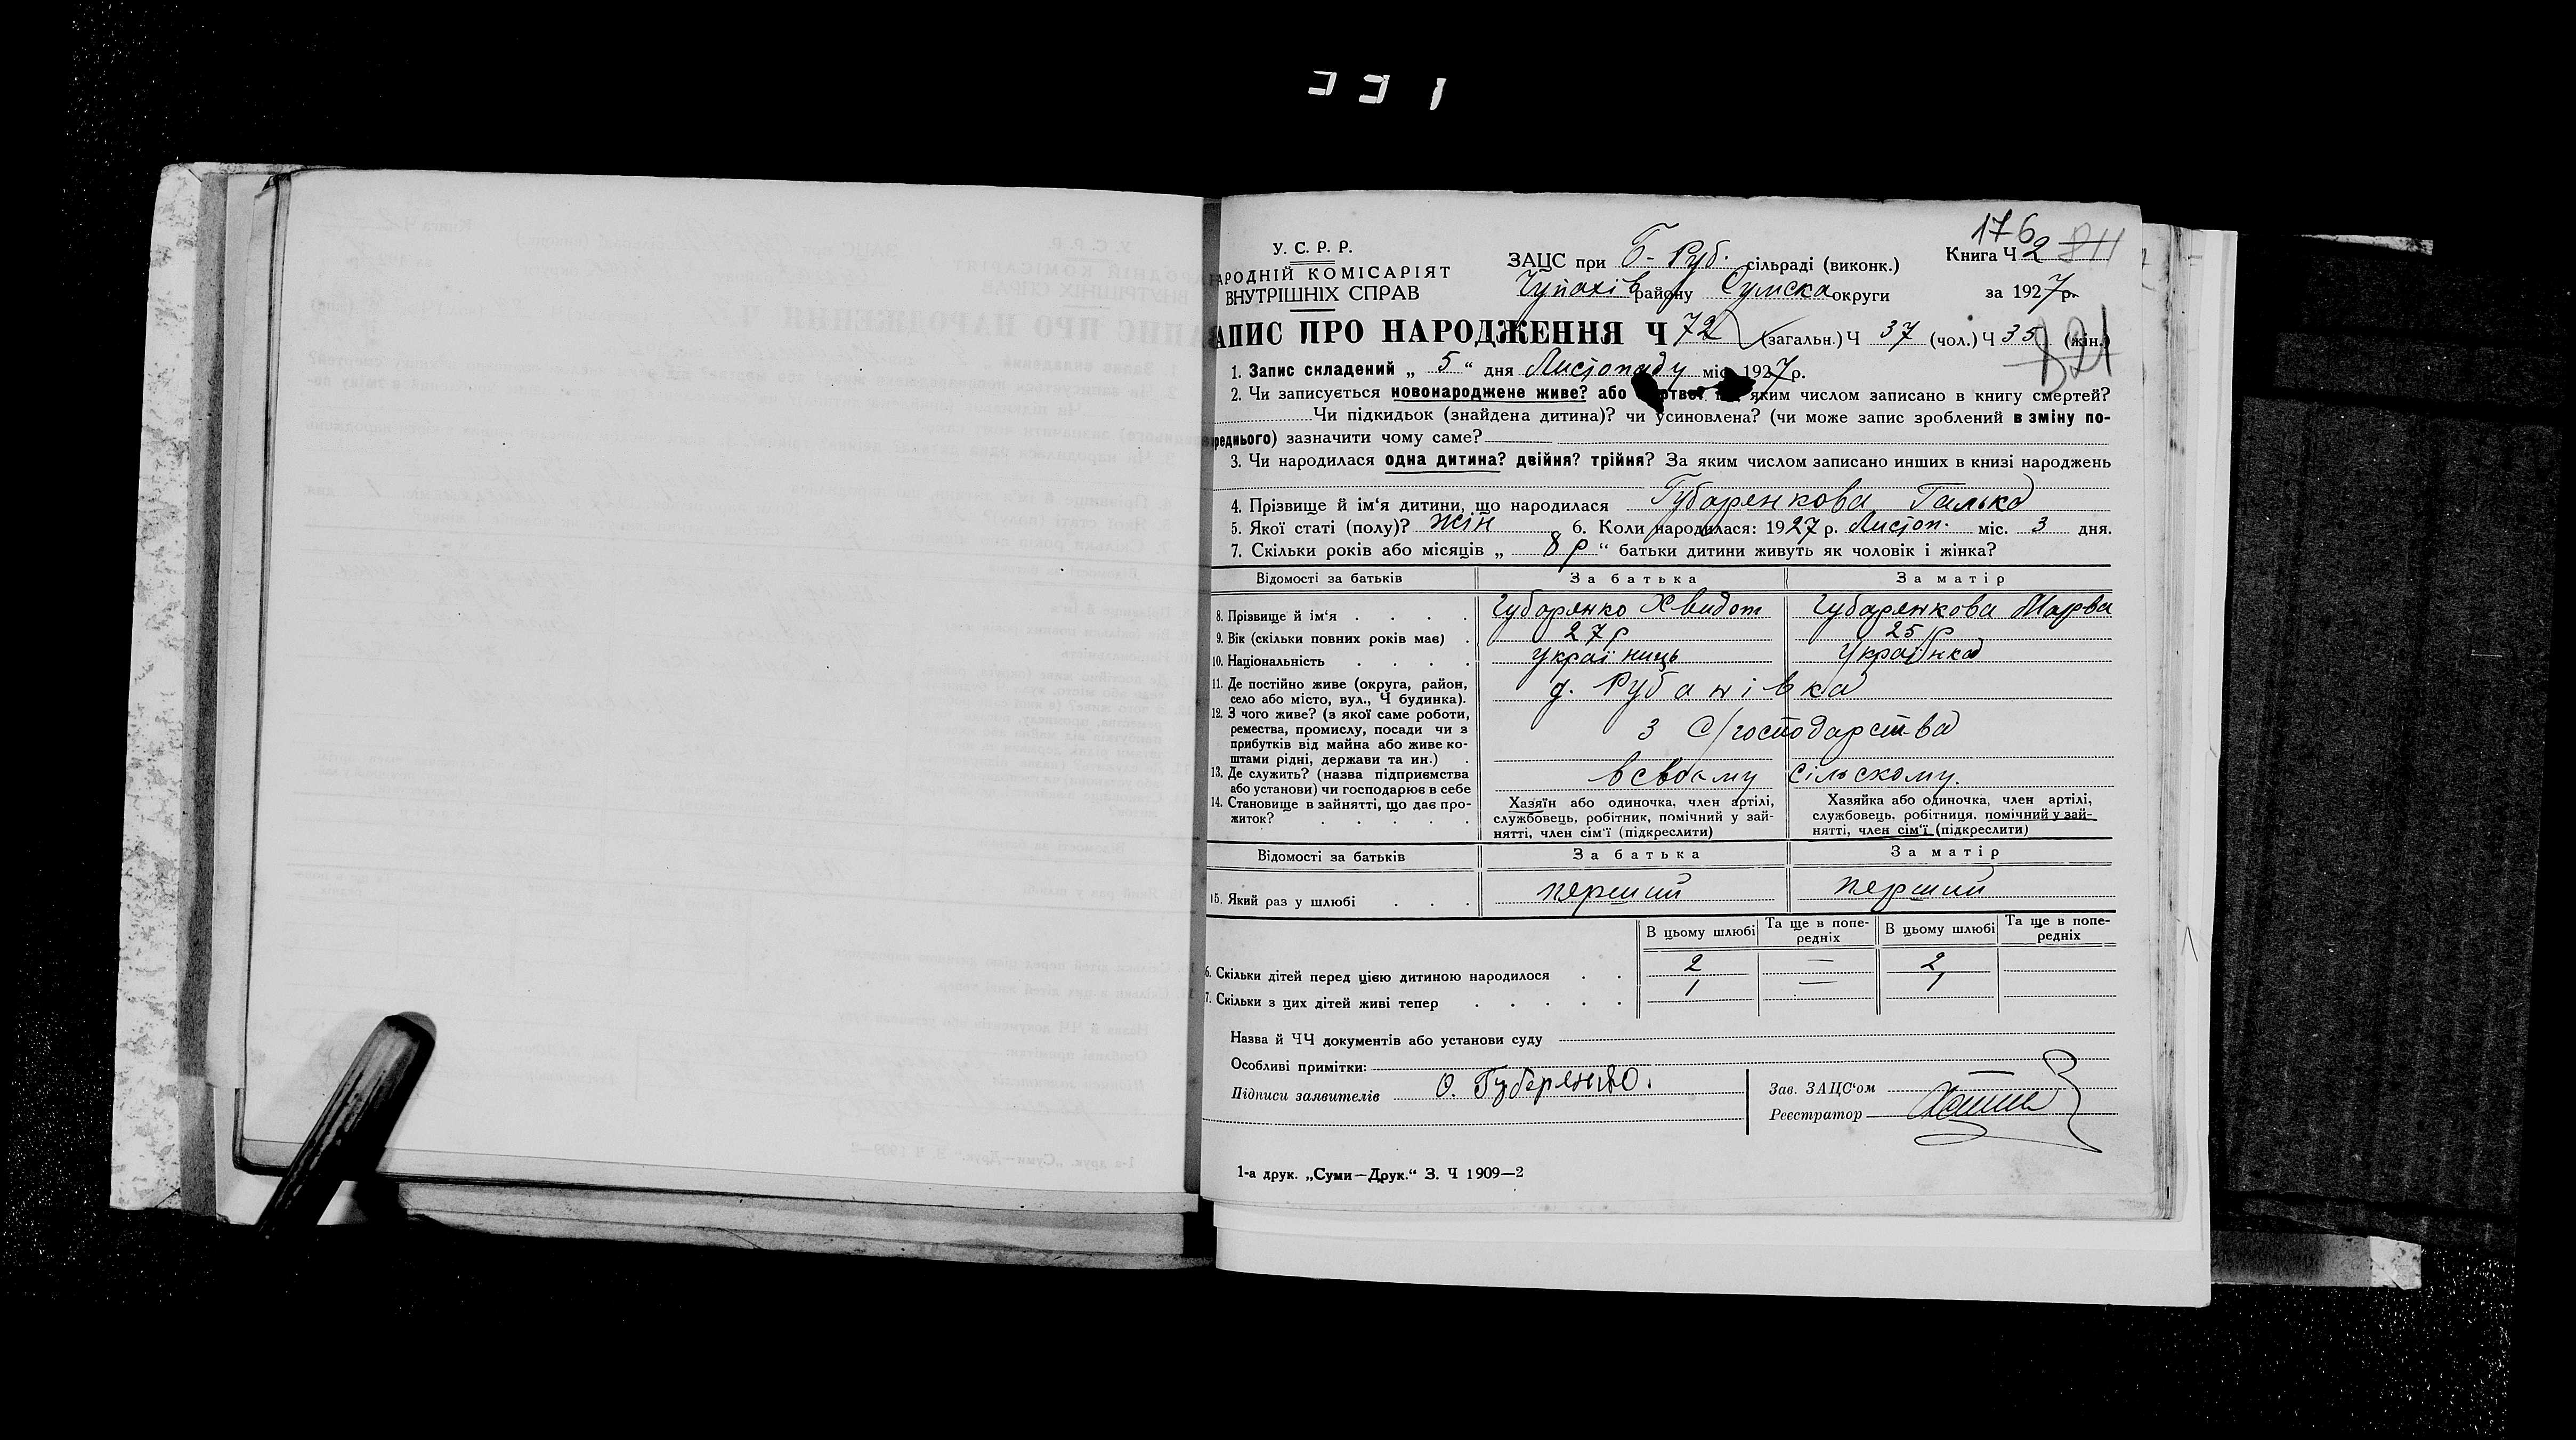 331
176
У. С. Р. Р.
ЗАЦС при Б-Руб. сільраді (виконк.)
Книга Ч 2 811
АРОДНІЙ КОМІСАРІЯТ
ВНУТРІШНІХ СПРАВ
Чупахів району Сумска округи
за 1927 р.
АПИС ПРО НАРОДЖЕННЯ Ч 72 (загальн.) Ч 37 (чол.) Ч 35 (жін.)
1. Запис складений „ 5 “ дня Листопаду міс. 1927 р.
2. Чи записується новонароджене живе? або яким числом записано в книгу смертей?
Чи підкидьок (знайдена дитина)? чи усиновлена? (чи може запис зроблений в зміну по-
реднього) зазначити чому саме?
3. Чи народилася одна дитина? двійня? трійня? За яким числом записано инших в книзі народжень
4. Прізвище й ім‘я дитини, що народилася Губаренкова Галька
5. Якої статі (полу)? жін 6. Коли народилася: 1927 р. Листоп. міс. 3 дня.
7. Скільки років або місяців „ 8 р “ батьки дитини живуть як чоловік і жінка?
Відомості за батьків За батька За матір
8. Прізвище й ім‘я . . . . Губаренко Хведот Губаренкова Марва
9. Вік (скільки повних років має) . 27 р 25 р
10. Національність . . . . Україниць Українка
11. Де постійно живе (округа, район,
село або місто, вул., Ч будинка).
д. Рубанівка
12. З чого живе? (з якої саме роботи,
ремества, промислу, посади чи з
прибутків від майна або живе ко-
штами рідні, держави та ин.) .
З С/господарства
13. Де служить? (назва підприємства
або установи) чи господарює в себе
в своєму сільскому.
14. Становище в зайнятті, що дає про-
житок? . . . . .
Хазяїн або одиночка, член артілі,
службовець, робітник, помічний у зай-
нятті, член сім‘ї (підкреслити)
Хазяйка або одиночка, член артілі,
службовець, робітниця, помічний у зай-
нятті, член сім‘ї (підкреслити)
Відомості за батьків За батька За матір
15. Який раз у шлюбі . . . перший перший
В цьому шлюбі Та ще в попе-редніх В цьому шлюбі Та ще в попе-редніх
6. Скільки дітей перед цією дитиною народилося . . 2 — 2
7. Скільки з цих дітей живі тепер . . . . . 1 — 1
Назва й ЧЧ документів або установи суду
Особливі примітки:
Підписи заявителів О. Губеренко.
Зав. ЗАЦС‘ом —
Реєстратор
1-а друк. „Суми—Друк.“ З. Ч 1909—2